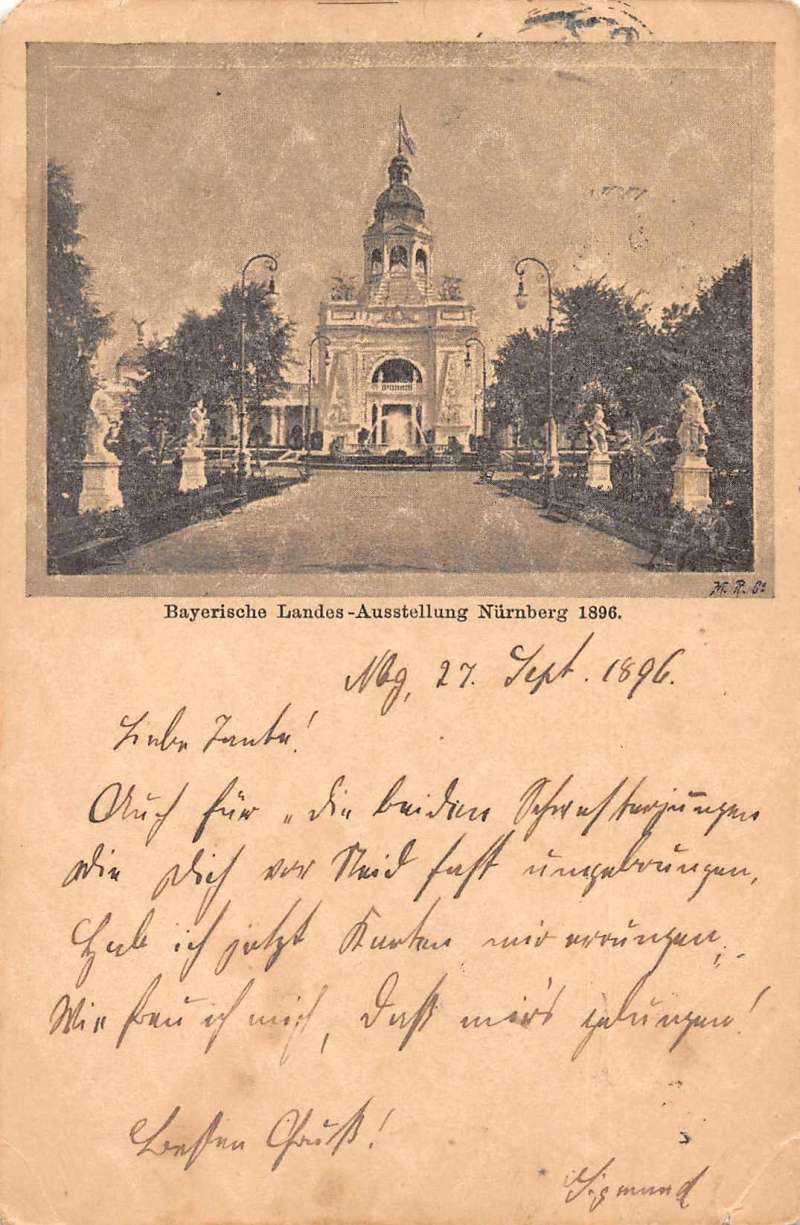 Bayerische Landes-Ausstellung Nürnberg 1896.
Nbg, 27. Sept. 1896.
Liebe Tante!
Auch für „die beiden Schwesterjungen
die Dich vor Neid fast umgebrungen,
Hab ich jetzt Karten mir errungen,
Wie freu ich mich, daß mir's gelungen!
Besten Gruß!
Sigmund